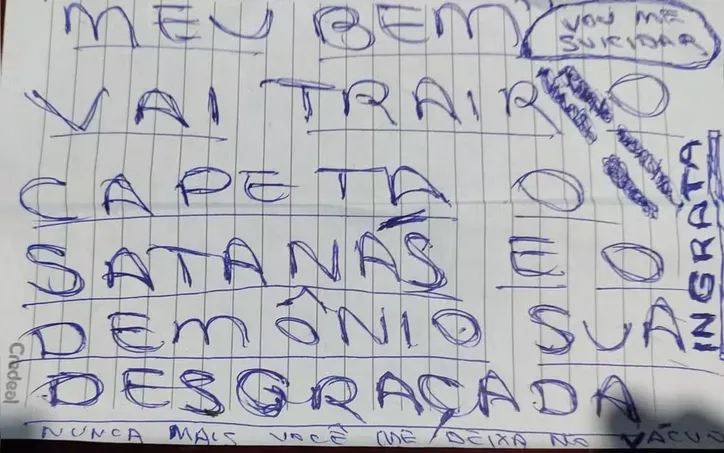 MEU BEM
VOU ME
SUICIDAR
VAI TRAIR O
CAPETA O
SATANÁS E O
DEMÔNIO SUA
DESGRAÇADA
NUNCA MAIS VOCÊ ME DEIXA NO VÁCUO
INGRATA
Credeal